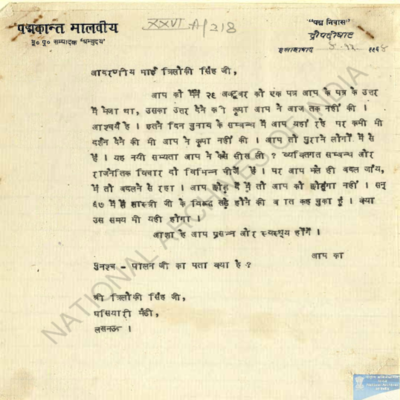 पद्मकान्त मालवीय
भू० पू० सम्पादक "अभ्युदय"
XXVI A/218
"पद्म निवास"
द्रौपदीघाट
इलाहाबाद
आदरणीय भाई त्रिलोकी सिंह जी,
आप को मैंने २६ अक्टूबर को एक पत्र आप के पत्र के उत्तर
में भेजा था, उसका उत्तर देने की कृपा आप ने आज तक नहीं की ।
आश्चर्य है । इतने दिन चुनाव के सम्बन्ध में आप यहां रहे पर कभी भी
दर्शन देने की भी आप ने कृपा नहीं की । आप तो पुराने लोगों में से
हैं । यह नयी सभ्यता आप ने कैसे सीख ली ? व्यक्तिगत सम्बन्ध और
राजनैतिक विचार दो विभिन्न चीजें हैं । पर आप भले ही बदल जांय,
मैं तो बदलने से रहा । आप छोड़ दें मैं तो आप को छोडूंगा नहीं । सन्
६७ में मैं शास्त्री जी के विरुद्ध खड़े होने की बात कह चुका हूं । क्या
उस समय भी यही होगा ।
आशा है आप प्रसन्न और स्वस्थ होंगे ।
आप का
पुनश्च - पालन जी का पता क्या है ?
श्री त्रिलोकी सिंह जी,
घसियारी मंडी,
लखनऊ ।
NATIONAL ARCHIVES OF INDIA